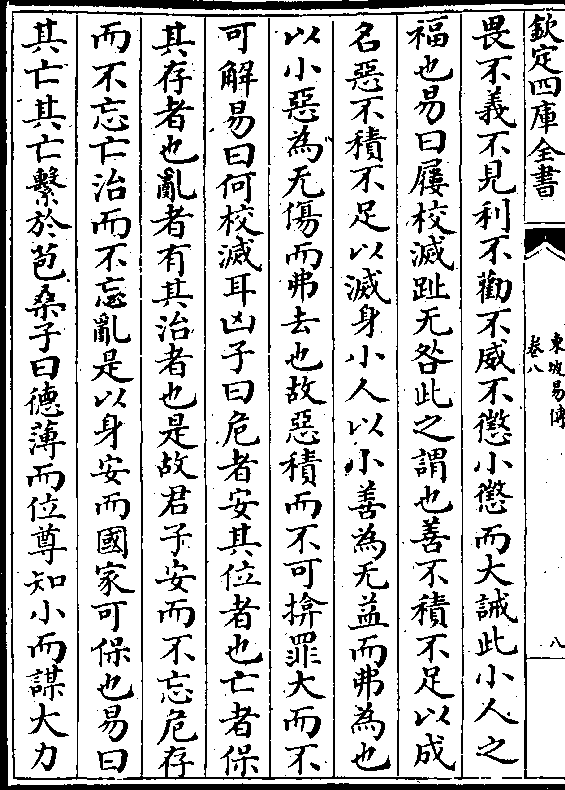 欽定四庫全書
東坡易傳
卷八
八
畏不義不見利不勸不威不懲小懲而大誡此小人之
福也易曰屨校滅趾无咎此之謂也善不積不足以成
名惡不積不足以滅身小人以小善為无益而弗為也
以小惡為无傷而弗去也故惡積而不可揜罪大而不
可解易曰何校滅耳凶子曰危者安其位者也亡者保
其存者也亂者有其治者也是故君子安而不忘危存
而不忘亡治而不忘亂是以身安而國家可保也易曰
其亡其亡繫於苞桑子曰德薄而位尊知小而謀大力